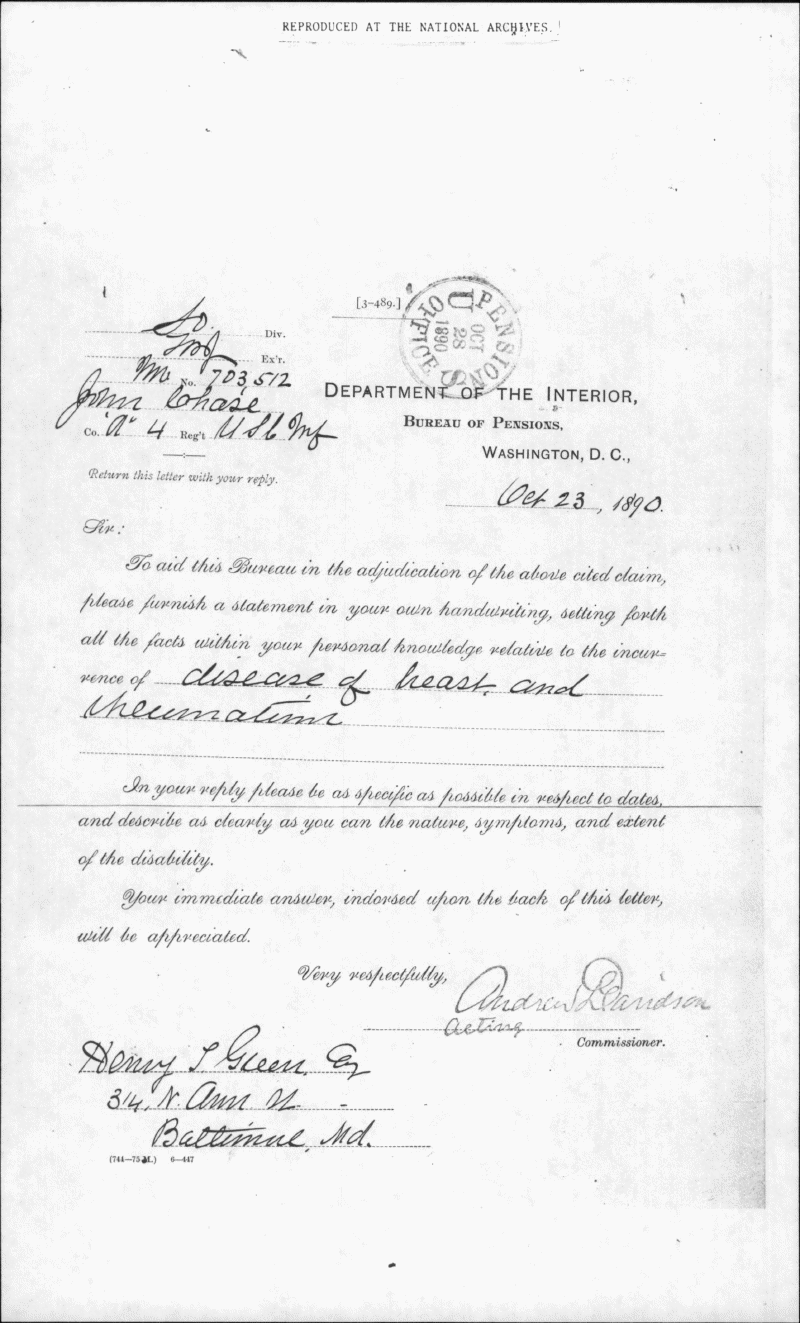 REPRODUCED AT THE NATIONAL ARCHIVES.
[3-489.]
PENSION OFFICE
U S
OCT
28
1890
So. Div.
Ex'r.
No. 703,512
John Chase
Co. "A" 4 Reg't U S C Inf
Return this letter with your reply.
DEPARTMENT OF THE INTERIOR,
BUREAU OF PENSIONS,
WASHINGTON, D. C.,
Oct 23, 1890.
Sir:
To aid this Bureau in the adjudication of the above cited claim,
please furnish a statement in your own handwriting, setting forth
all the facts within your personal knowledge relative to the incur=
rence of disease of heart, and
rheumatism
In your reply please be as specific as possible in respect to dates,
and describe as clearly as you can the nature, symptoms, and extent
of the disability.
Your immediate answer, indorsed upon the back of this letter,
will be appreciated.
Very respectfully,
Andrew Davidson
Acting
Commissioner.
Henry S Green Esq
314, N. Ann St
Baltimore, Md.
6-447